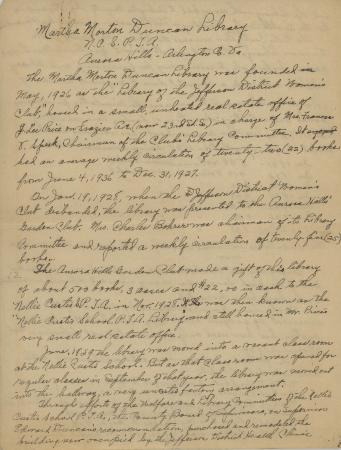 Martha Morton Duncan Library
N.C.S. P.T.A.
Aurora Hills - Arlington Co Va
The Martha Morton Duncan Library was founded in
May, 1926 as the "Library of the Jefferson District Woman's
Club," housed in a small, unheated real estate office of
J. Lee Price on Frazier Rd. (now 23rd St. S.) in charge of Mrs. Frances
Speek, Chairman of the Club's Library Committee. It
had an average weekly circulation of twenty-two (22) books
from June 4, 1936 to Dec. 31, 1927.
On Jan. 19, 1928, when the Jefferson District Woman's
Club disbanded, the library was presented to the Aurora Hills
Garden Club. Mrs. Charles was chairman of its Library
Committee and reported a weekly circulation of twenty five (25)
books.
The Aurora Hills Garden Club made a gift of this library
of about 500 books, 3 cases and $22. in cash to the
Nellie Custis P.T.A. in Nov. 1928. It was then known as the
"Nellie Custis School P.T.A. Library and still housed in Mr. Price's
very small real estate office.
June, 1939 the library was moved into a vacant classroom
at the Nellie Custis School. But as that classroom was opened for
regular classes in September of that year, the library was moved out
into the hallway, a very unsatisfactory arrangement.
Through efforts of the Welfare and Library Committees of the Nellie
Custis School P.T.A., the County Board of Supervisors, on Supervisor
Edward Duncan's recommendation, purchased and remodeled the
building now occupied by the Jefferson District Health Clinic